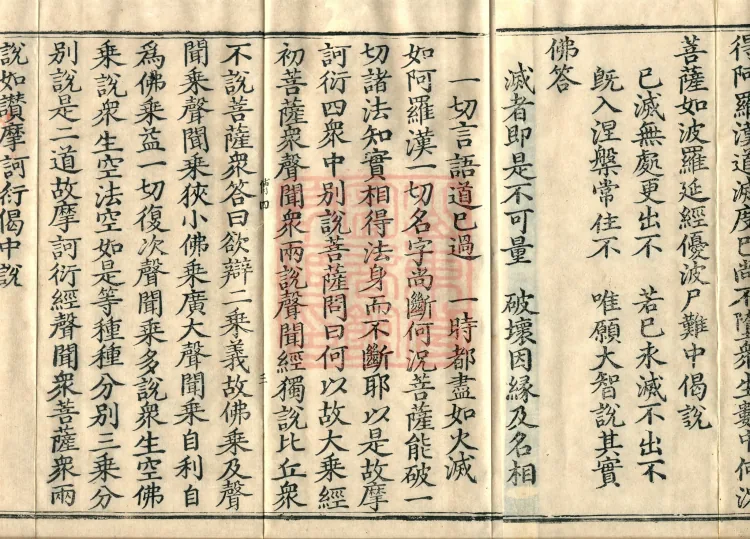 得阿羅漢道滅度已尚不隨衆生數中何況
菩薩如波羅延經優波尸難中偈說
已滅無處更出不　若已永滅不出不
旣入涅槃常住不　唯願大智說其實
佛答
滅者即是不可量　破壞因緣及名相
一切言語道已過　一時都盡如火滅
如阿羅漢一切名字尚斷何況菩薩能破一
切諸法知實相得法身而不斷耶以是故摩
訶衍四衆中別說菩薩問曰何以故大乘經
初菩薩衆聲聞衆兩說聲聞經獨說比丘衆
備四
三
不說菩薩衆答曰欲辯二乘義故佛乘及聲
聞乘聲聞乘狹小佛乘廣大聲聞乘自利自
爲佛乘益一切復次聲聞乘多說衆生空佛
乘說衆生空法空如是等種種分別三乘分
別說是二道故摩訶衍經聲聞衆菩薩衆兩
說如讚摩訶衍偈中說